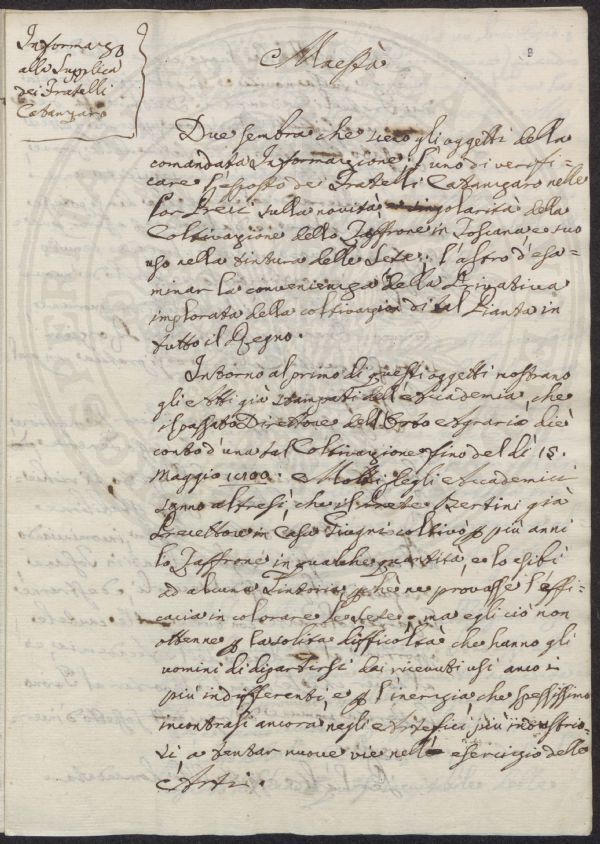 Informaz.e
alla Supplica
dei Fratelli
Catanzaro
Maestà
Due sembra che sieno gli oggetti della
comandata Informazione: l'uno di verifi-
care l'esposto dei Fratelli Catanzaro nelle
lor Preci sulla novità e singolarità della
Coltivazione dello Zaffrone in Toscana e suo
uso nella tintura delle Sete: l'altro d'esa-
minar la convenienza della Privativa
implorata della coltivazion di tal Pianta in
tutto il Regno.
Intorno al primo di questi oggetti mostrano
gli Atti già stampati dell'Accademia, che
il passato Direttore dell'Orto Agrario diè
conto d'una tal Coltivazione fino del dì 15.
Maggio : e Molti degli Accademici
sanno altresì, che il Prete Bertini già
Precettore in Casa Pucini coltivò p più anni
lo Zaffrone in qualche quantità, e lo esibì
ad alcuni Tintori p chè ne provasse l'effi-
cacia in colorare le Sete, ma egli ciò non
ottenne p la solita difficoltà che hanno gli
uomini di dipartirsi dai ricevuti usi anco i
più indifferenti, e p l'inerzia che spessissimo
incontrasi ancora negli Artefici più industrio-
si a tentar nuove vie nell esercizio delle
Arti.